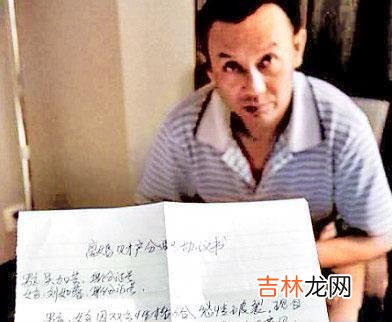 离婚财产分割协议书
男方 吴加芳，身份证号
女方 刘如蓉，身份证号
男方、女方因双方性格不合，感情破裂，现自
吉林龙网